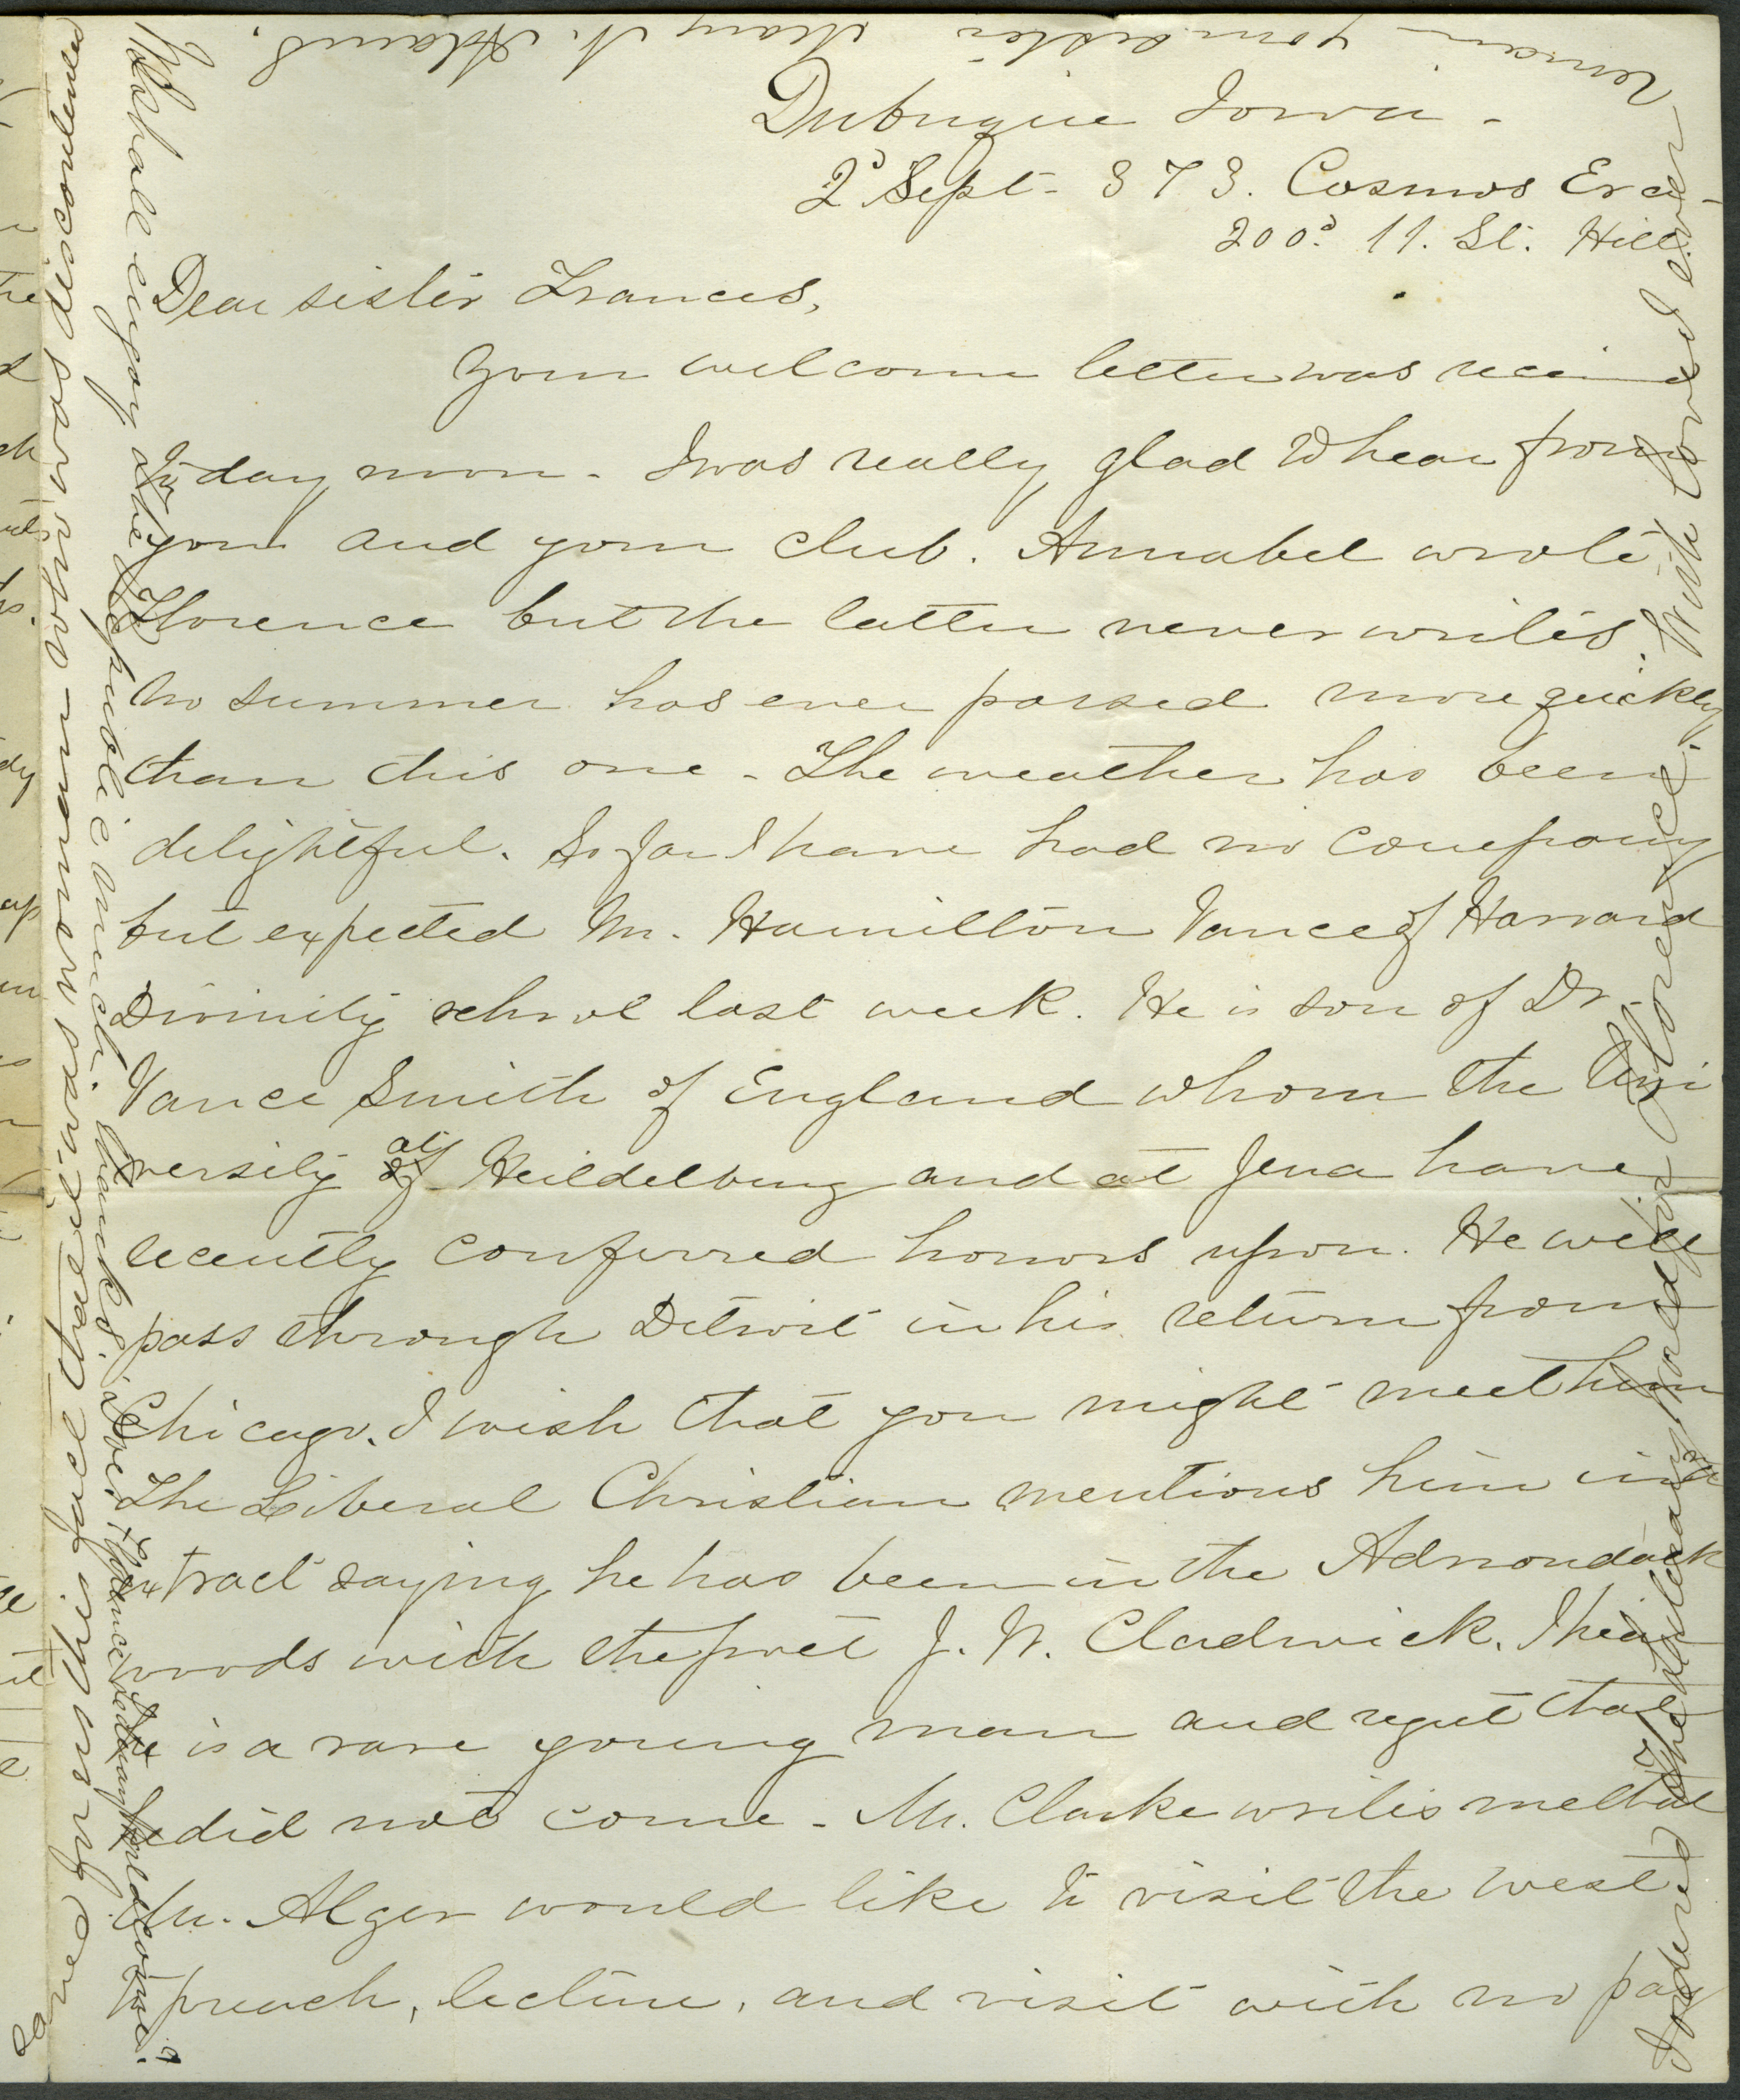 Dubuque Iowa -
2d Sept - 373. Cosmos Era -
200d. 11. St. Hill
Dear sister Frances,
Your welcome letter was received
to day noon - I was really glad to hear from
you and your club. Annabel wrote
Florence but the latter never writes.
No summer has ever passed more quickly
than this one - The weather has been
delightful. So far I have had no company
but expected Mr. Hamilton Vance of Harvard
Divinity school last week. He is son of Dr.
Vance Smith of England whom the Uni
versity at Heildelburg and at Jena have
recently conferred honors upon. He will
pass through Detroit in his return from
Chicago. I wish that you might meet him
The Liberal Christian mentions him in a
extract saying he has been in the Adirondack
woods with the poet J. W. Chadwick. I hear
he is a rare young man and regret that
he did not come - Mr. Clarke writes me that
Mr. Alger would like to visit the west
to preach, lecture, and visit with no pay
I ordered The Literary World for Florence. With love I ever
remain your sister Mary N. Adams.
We shall enjoy the Republic much. thanks.
Does Florence's Literary World come?